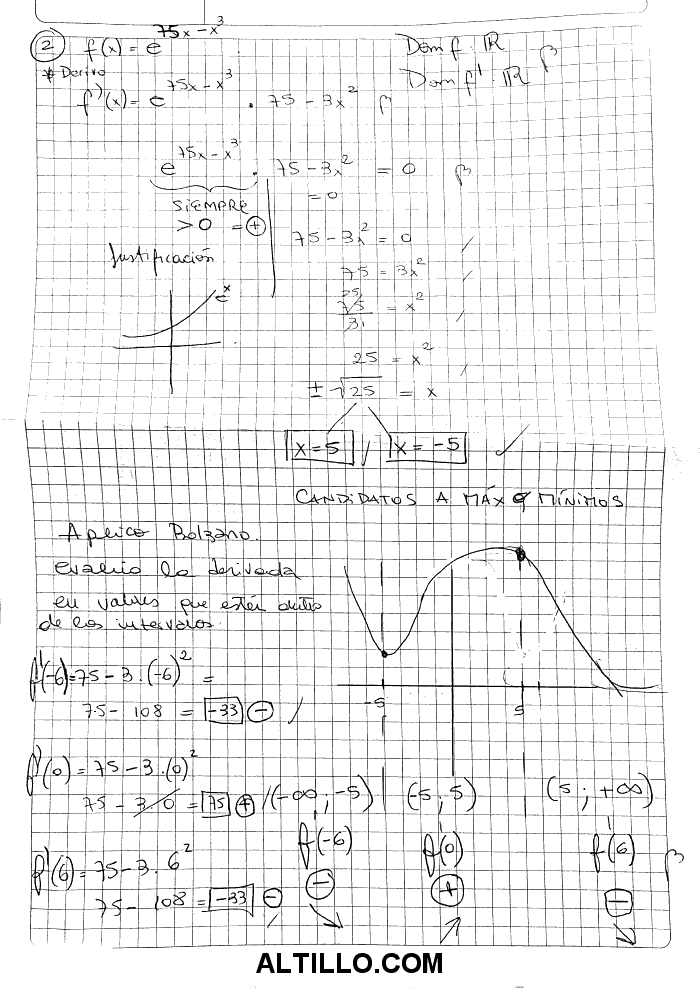 2 f(x) = e^75x - x^3 Dom f: ℝ
* Derivo Dom f' ℝ
f'(x) = e^75x - x^3 . 75 - 3x^2
e^75x - x^3 . 75 - 3x^2 = 0
= 0
SIEMPRE
> 0 = +
75 - 3x^2 = 0
Justificación
75 = 3x^2
e^x
75/3 = x^2
25 = x^2
± √25 = x
x = 5 x = -5
CANDIDATOS A MÁX o MÍNIMOS
Aplico Bolzano.
evalúo la derivada
en valores que estén dentro
de los intervalos.
f'(-6) = 75 - 3 . (-6)^2 =
75 - 108 = -33 -
-5 5
f'(0) = 75 - 3 . (0)^2
75 - 3/0 = 75 +
(-∞ ; -5) (-5 ; 5) (5 ; +∞)
f(-6) f(0) f(6)
- + -
f'(6) = 75 - 3 . 6^2
75 - 108 = -33 -
ALTILLO.COM